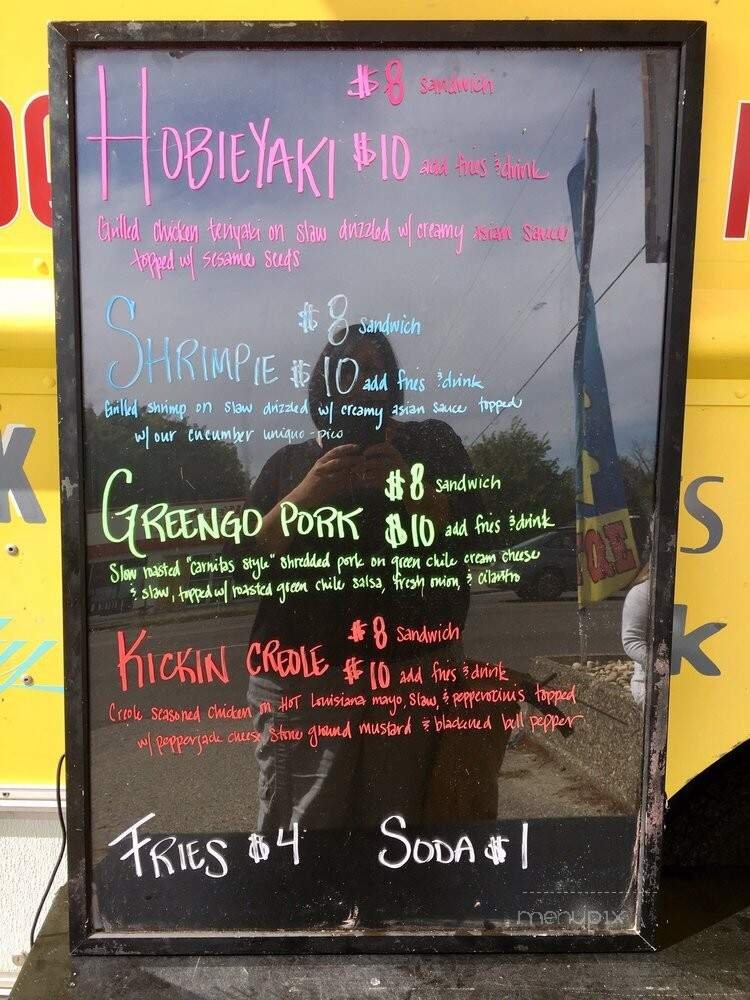 $8 sandwich
HOBIEYAKI $10 add fries & drink
Grilled chicken teriyaki on slaw drizzled w/ creamy asian sauce
topped w/ sesame seeds
$8 sandwich
SHRIMPIE $10 add fries & drink
Grilled shrimp on slaw drizzled w/ creamy asian sauce topped
w/ our cucumber unique-pico
$8 sandwich
GREENGO PORK $10 add fries & drink
Slow roasted "carnitas style" shredded pork on green chile cream cheese
& slaw, topped w/ roasted green chile salsa, fresh onion, & cilantro
$8 sandwich
KICKIN CREOLE $10 add fries & drink
Creole seasoned chicken on HOT Louisiana mayo, slaw, & pepperoncinis topped
w/ pepperjack cheese stone ground mustard & blackened bell pepper
FRIES $4 SODA $1
menupix
K
S
K